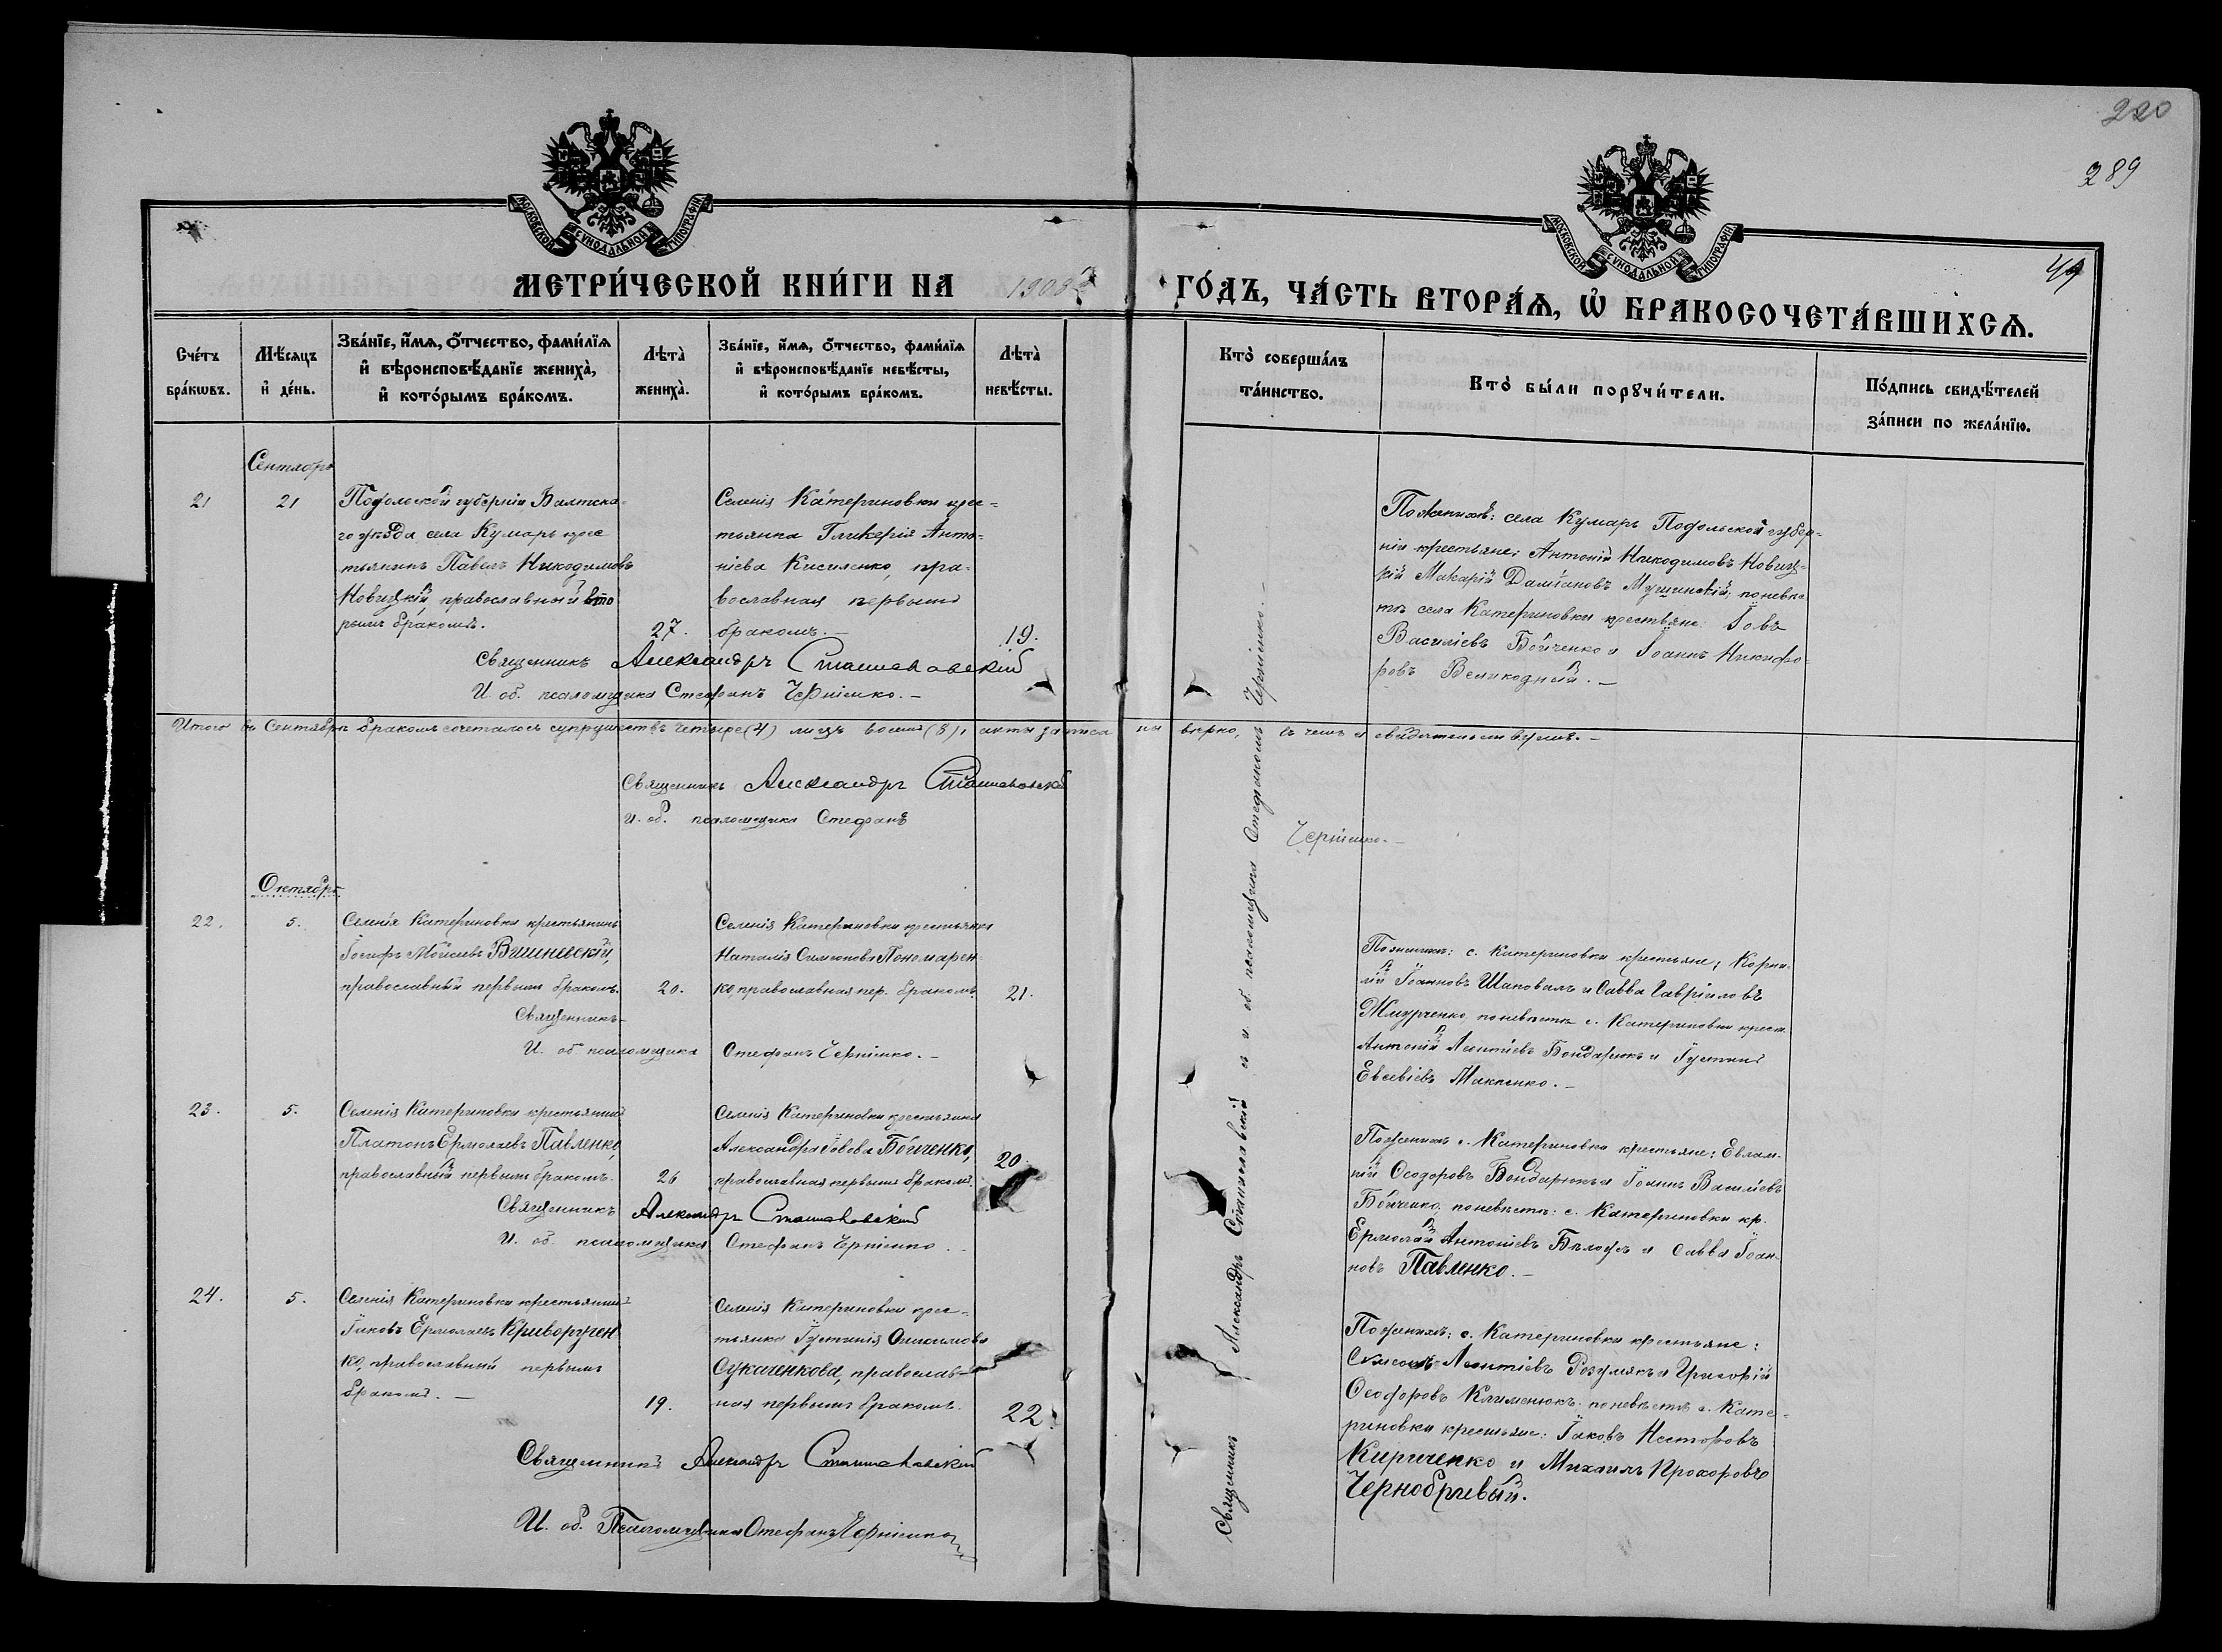 220
289
49
МОСКОВСКОЙ СѴНОДАЛЬНОЙ ТИПОГРАФІИ
МОСКОВСКОЙ СѴНОДАЛЬНОЙ ТИПОГРАФІИ
МЕТРИ́ЧЕСКОЙ КНИ́ГИ НА 1908й
ГО́ДЪ, ЧА́СТЬ ВТОРА́Ѧ, Ѽ БРАКОСОЧЕТА́ВШИХСѦ.
Сче́тъ бра́кωвъ.
Мѣ́сѧцъ и́ де́нь.
Зва́нїе, и́мѧ, о́тчество, фами́лїѧ и́ вѣроисповѣ́данїе жениха̀, и́ кото́рымъ бра́комъ.
Лѣта̀ жениха̀.
Зва́нїе, и́мѧ, о́тчество, фами́лїѧ и́ вѣроисповѣ́данїе невѣ́сты, и́ кото́рымъ бра́комъ.
Лѣта̀ невѣ́сты.
Кто̀ соверша́лъ та́инство.
Кто̀ бы́ли порꙋчи́тели.
По́дпись свидѣ́телей за́писи по жела́нїю.
Сентябрь
21
21
Подольской губерніи Балтска-
го уѣзда села Кумаръ крес
тьянинъ Павелъ Никодимовъ
Новицкій, православный вто
рымъ бракомъ.
27.
Селенія Катериновки крес-
тьянка Гликерія Анто-
ніева Кисиленко, пра-
вославная первымъ
бракомъ.-
19.
Священникъ Александръ Станиславскій
И. об. псаломщика Стефанъ Чернієнко.-
По женихѣ: села Кумаръ Подольской губер-
ніи крестьяне: Антоній Никодимовъ Новиц-
кій Макарій Даміановъ Мушинскій; по невѣс
тѣ села Катериновки крестьяне: Іовъ
Василіевъ Бойченко и Іоаннъ Никифо-
ровъ Великодный.-
Итого въ Сентябрѣ бракомъ сочеталось супружествъ четыре (4) лицъ восемь (8), акты записа ны вѣрно, въ чемъ и свидѣтельствуемъ.-
Священникъ Александръ Станиславскій
И. об. псаломщика Стефанъ
Чернієнко.-
Октябрь
22.
5.
Селенія Катериновки крестьянинъ
Іосифъ Моисеевъ Вишневскій,
православный первымъ бракомъ.
20.
Селенія Катериновки крестьянка
Наталія Симеонова Пономарен-
ко, православная пер. бракомъ.
21.
Священникъ-
И. об псаломщика Стефанъ Чернієнко.-
По женихѣ: с. Катериновки крестьяне; Корни-
лій Іоанновъ Шаповалъ и Савва Гавріиловъ
Жмурченко, по невѣстѣ с. Катериновки крест.
Антоній Леонтіевъ Бондарюкъ и Іустинъ
Евсевіевъ
23.
5.
Селенія Катериновки крестьянинъ
Платонъ Ермолаевъ Павленко,
православный первымъ бракомъ.
26
Селенія Катериновки крестьянка
Александра Іовова Бойченко,
православная первымъ бракомъ.
20.
Священникъ Александръ Станиславскій
И. об. псаломщика Стефанъ Чернієнко.
По женихѣ с. Катериновки крестьяне: Евлам-
пій Ѳеодоровъ Бондарюкъ и Іоаннъ Василіевъ
Бойченко; по невѣстѣ: с. Катериновки кр.
Ермолай Антоніевъ и Савва Іоан-
новъ Павленко.-
24.
5.
Селенія Катериновки крестьянинъ
Іаковъ Ермолаевъ Криворучен
ко, православный первымъ
бракомъ.-
19.
Селенія Катериновки крес-
тьянка Іустинія Онисимова
Сукаченкова, православ-
ная первымъ бракомъ.
22.
Священникъ Александръ Станиславскій
И. об. Псаломщика Стефанъ Чернієнко
По женихѣ: с. Катериновки крестьяне:
Симеонъ Леонтіевъ Розумякъ и Григорій
Ѳеодоровъ Клименюкъ по невѣстѣ с. Кате-
риновки крестьяне: Іаковъ Несторовъ
Кириченко и Михаилъ Прохоровъ
Чернобривый.
Священникъ Александръ Станиславскій съ и. об псаломщика Стефаномъ Чернієнко.-